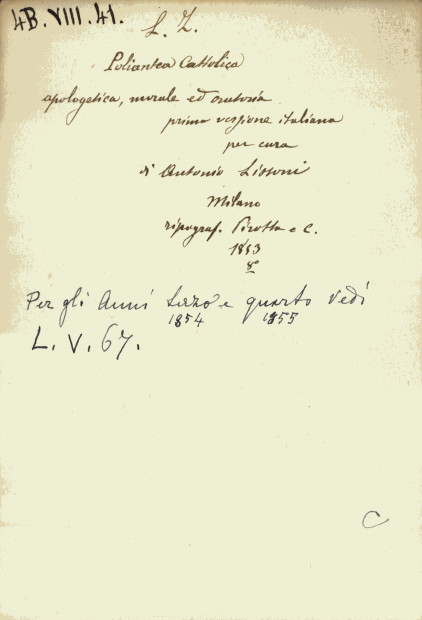 4B.VIII.41.
L. Z.
Poliantea Cattolica
apologetica, morale ed oratoria
prima versione italiana
per cura
di Antonio Lissoni
Milano
tipograf. Pirotta e C.
1853
8°
Per gli Anni terzo e quarto vedi
1854 1855
L. V. 67.
C